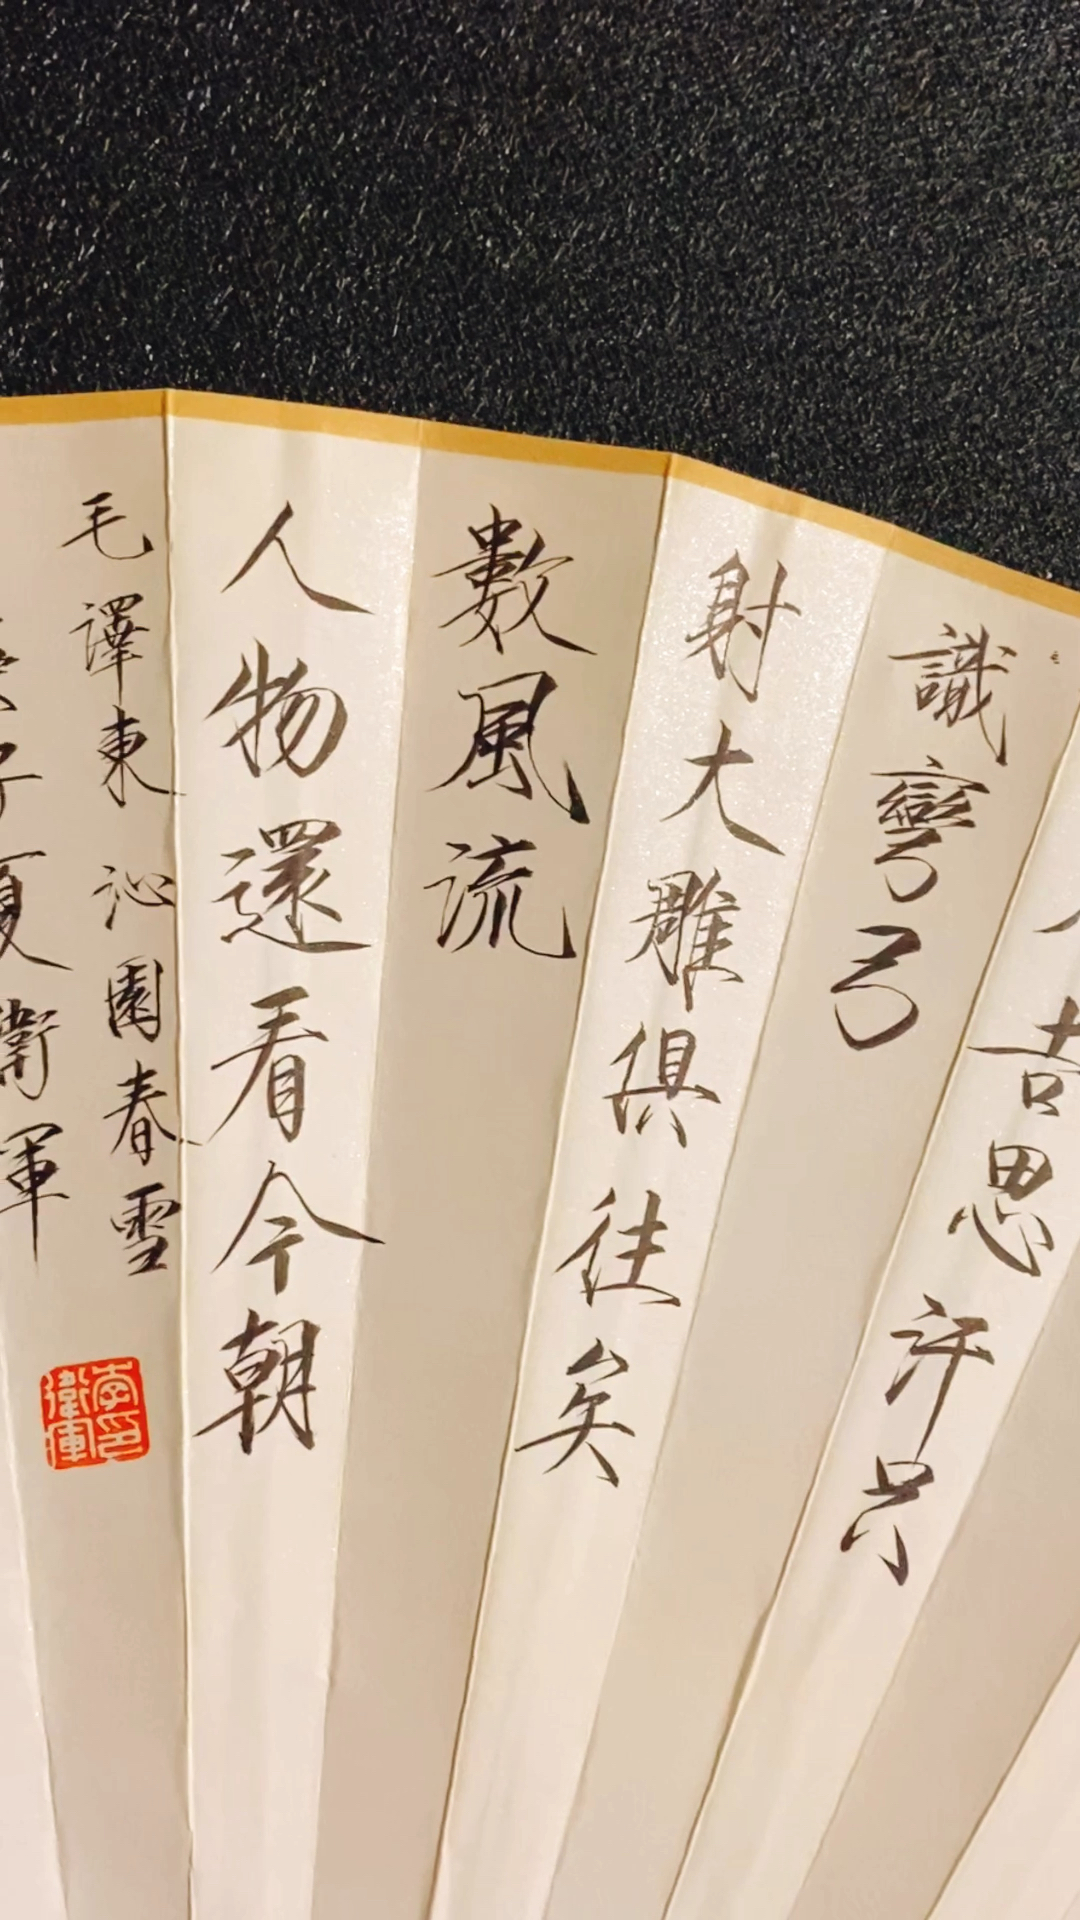 吉思汗只
識彎弓
射大雕俱往矣
數風流
人物還看今朝
毛澤東沁園春雪
夏衛軍
李印